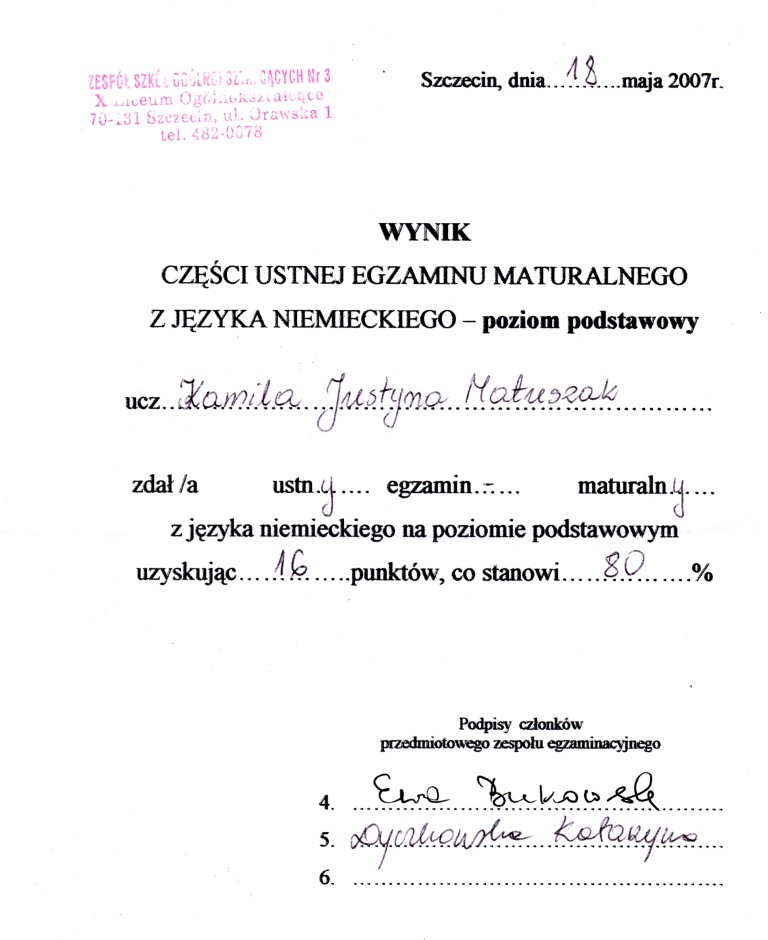 ZESPÓŁ SZKÓŁ OGÓLNOKSZTAŁCĄCYCH Nr 3
X Liceum Ogólnokształcące
70-131 Szczecin, ul. Orawska 1
tel. 482-0078
Szczecin, dnia...18...maja 2007r.
WYNIK
CZĘŚCI USTNEJ EGZAMINU MATURALNEGO
Z JĘZYKA NIEMIECKIEGO – poziom podstawowy
ucz. Kamila Justyna Matuszak
zdał /a ustn.y.... egzamin.-.... maturaln.y....
z języka niemieckiego na poziomie podstawowym
uzyskując....16......punktów, co stanowi.....80.......%
Podpisy członków
przedmiotowego zespołu egzaminacyjnego
4. Ewa
5. Katarzyna
6.